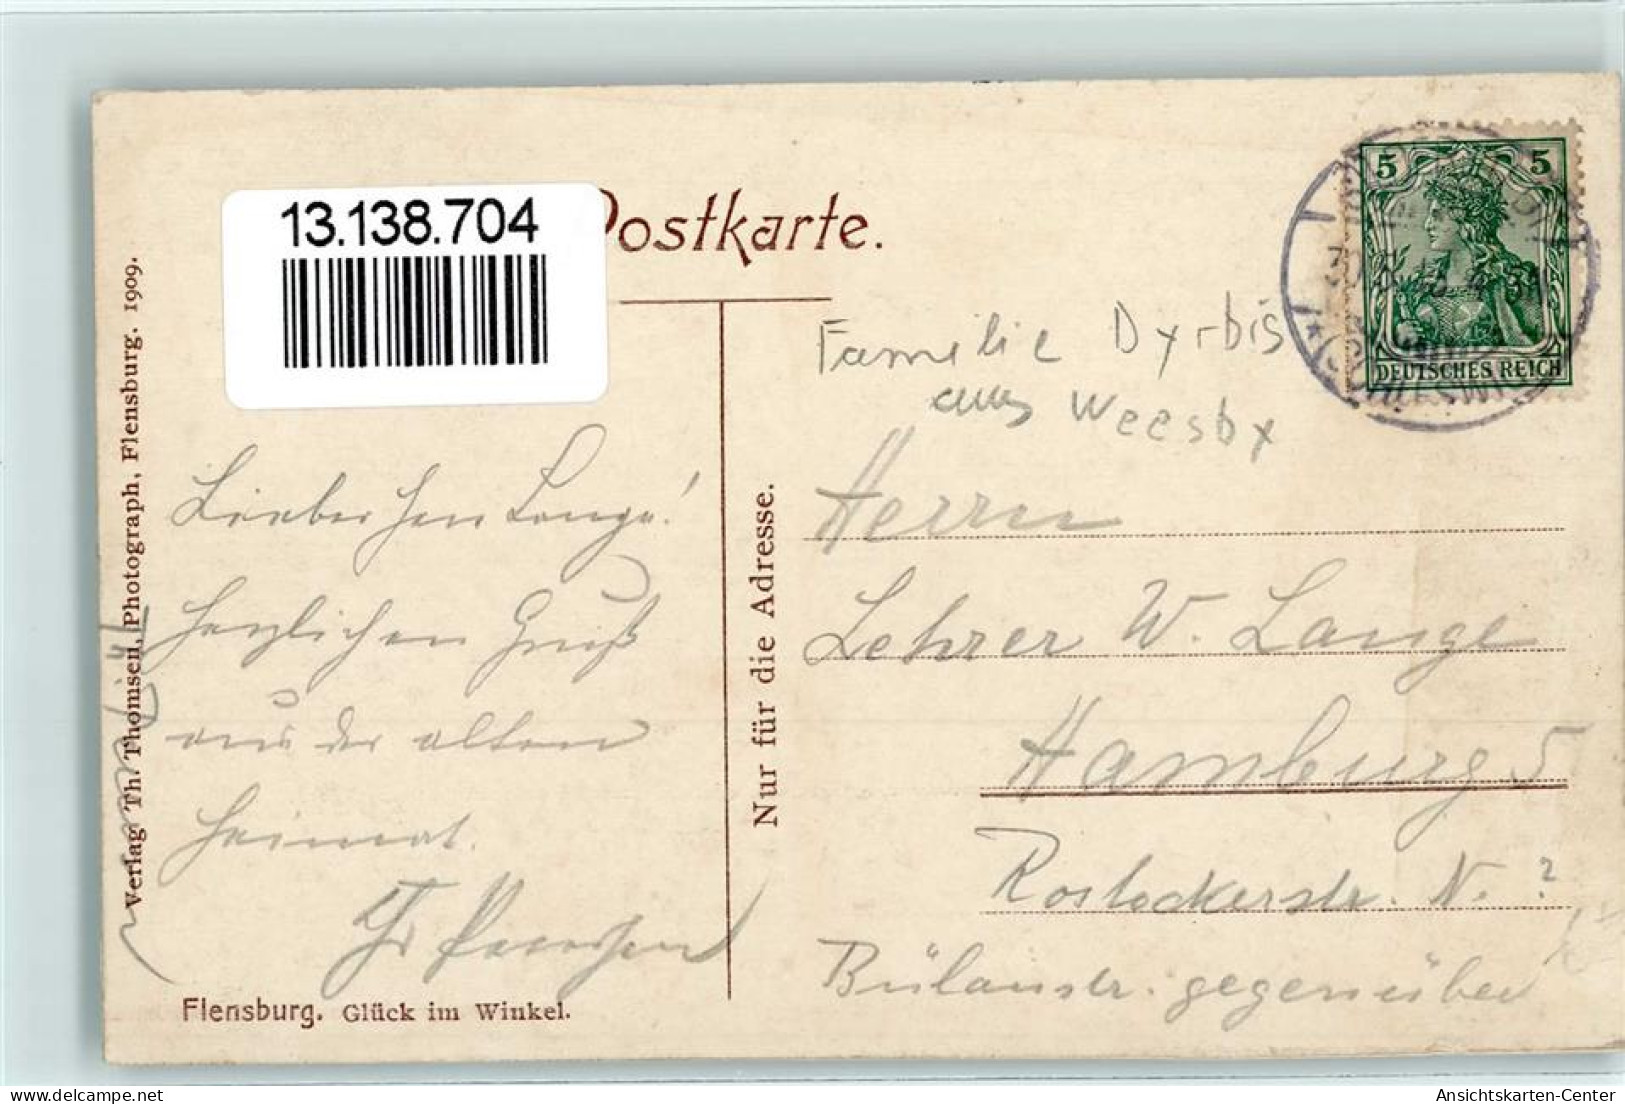 13.138.704
Postkarte.
5 5
DEUTSCHES REICH
Familie Dyrbis
aus Weesby
Lieber Herr Lange!
Herzlichen Gruß
aus der alten
Heimat.
Nur für die Adresse.
Herrn
Lehrer W. Lange
Hamburg 5
Rostockerstr. N. ?
Bülaustr. gegenüber
Verlag Th. Thomsen, Photograph, Flensburg. 1909.
Flensburg. Glück im Winkel.
Ansichtskarten-Center